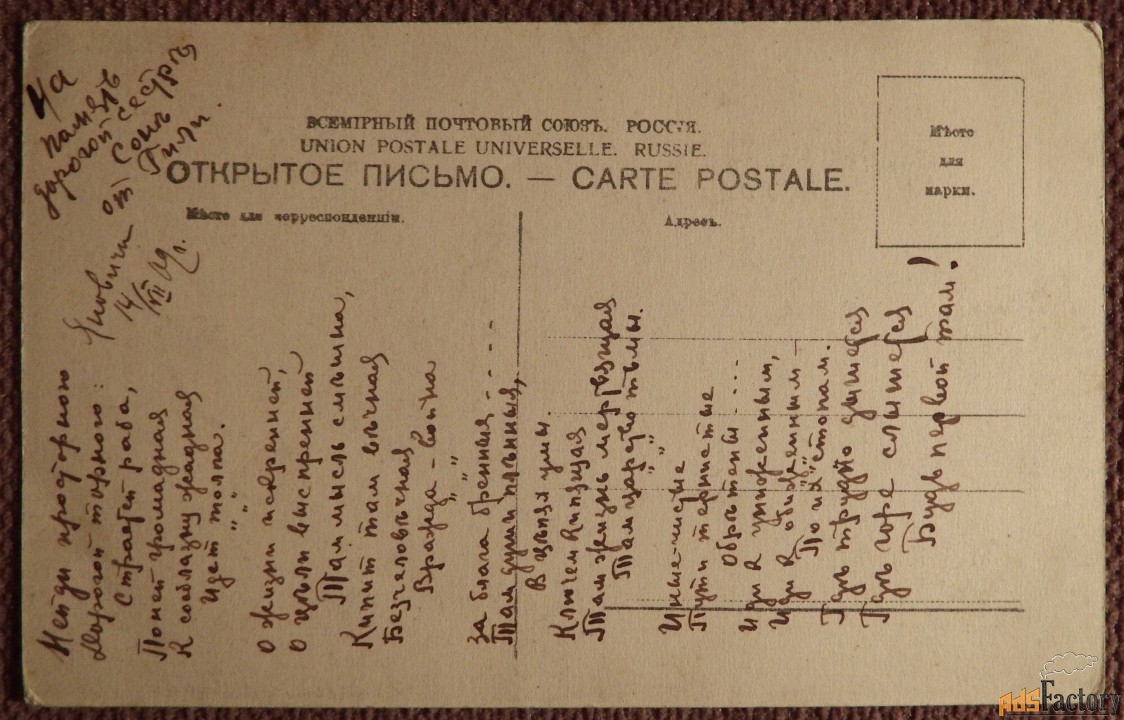 На
память
дорогой сестрѣ
от Сони
Гили.
14/VII 09 г.
ВСЕМІРНЫЙ ПОЧТОВЫЙ СОЮЗЪ. РОССІЯ.
UNION POSTALE UNIVERSELLE. RUSSIE.
ОТКРЫТОЕ ПИСЬМО. — CARTE POSTALE.
Мѣсто для корреспонденціи.
Адресъ.
Мѣсто
для
марки.
Не иди просторною
Дорогой торного:
Страстей раба,
По ней громадная
К соблазну жадная
Идет толпа.
" "
О жизни искренней,
О цѣли выспренней
Там мысль смѣшна,
Кипит там вѣчная
Безчеловѣчная
Вражда - война
" "
За блага бренныя - - - -
Там души плѣнныя,
В цѣпях умы.
Ключем кипящая
Там жизнь мертвящая
Там царство тьмы.
" "
Иные - чистые
Пути тернистые
Обрѣтены ....
Иди к униженным,
Иди к обиженным -
По их стопам.
Гдѣ трудно дышется
Гдѣ горе слышется
Будь первой там!
AdsFactory